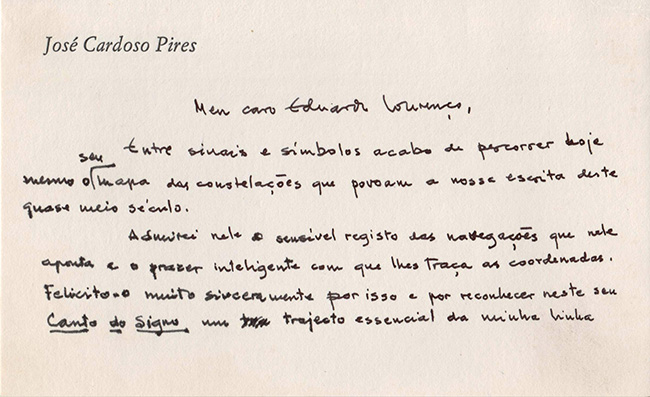 José Cardoso Pires
Meu caro Eduardo Lourenço,
Entre sinais e símbolos acabo de percorrer hoje
mesmo o seu mapa das constelações que povoam a nossa escrita deste
quase meio século.
Admirei nele o sensível registo das navegações que nele
aponta e o prazer inteligente com que lhes traça as coordenadas.
Felicito-o muito sinceramente por isso e por reconhecer neste seu
Canto do Signo um trajecto essencial da minha linha